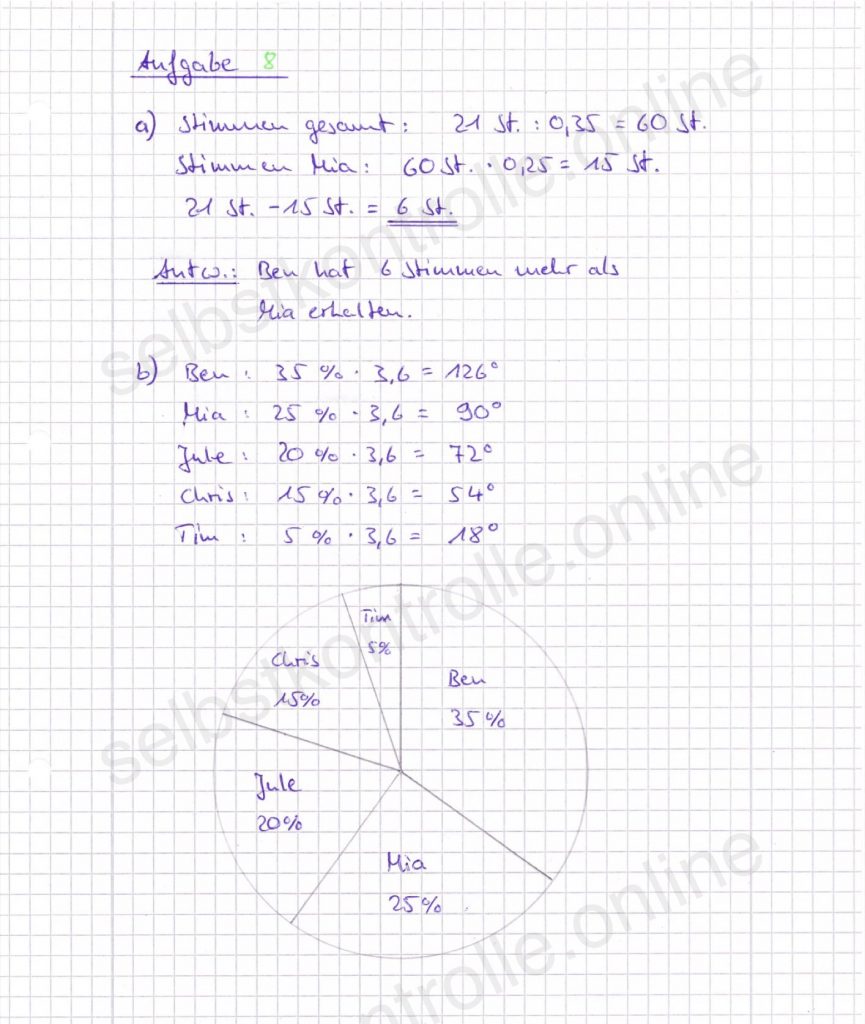 Aufgabe 8
a) Stimmen gesamt: 21 St. : 0,35 = 60 St.
Stimmen Mia: 60 St. · 0,25 = 15 St.
21 St. - 15 St. = 6 St.
Antw.: Ben hat 6 Stimmen mehr als
Mia erhalten.
b) Ben : 35 % · 3,6 = 126°
Mia : 25 % · 3,6 = 90°
Jule : 20 % · 3,6 = 72°
Chris : 15 % · 3,6 = 54°
Tim : 5 % · 3,6 = 18°
Tim
5%
Chris
15%
Ben
35%
Jule
20%
Mia
25%
selbstkontrolle.online
selbstkontrolle.online
selbstkontrolle.online